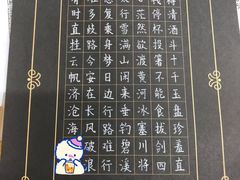 樽清酒斗十千玉盘珍羞直
钱停杯投箸不能食拔剑四
心茫然欲渡黄河冰塞川将
太行雪满山闲来垂钓碧溪
忽复乘舟梦日边行路难行
难多歧路今安在长风破浪
有时直挂云帆济沧海